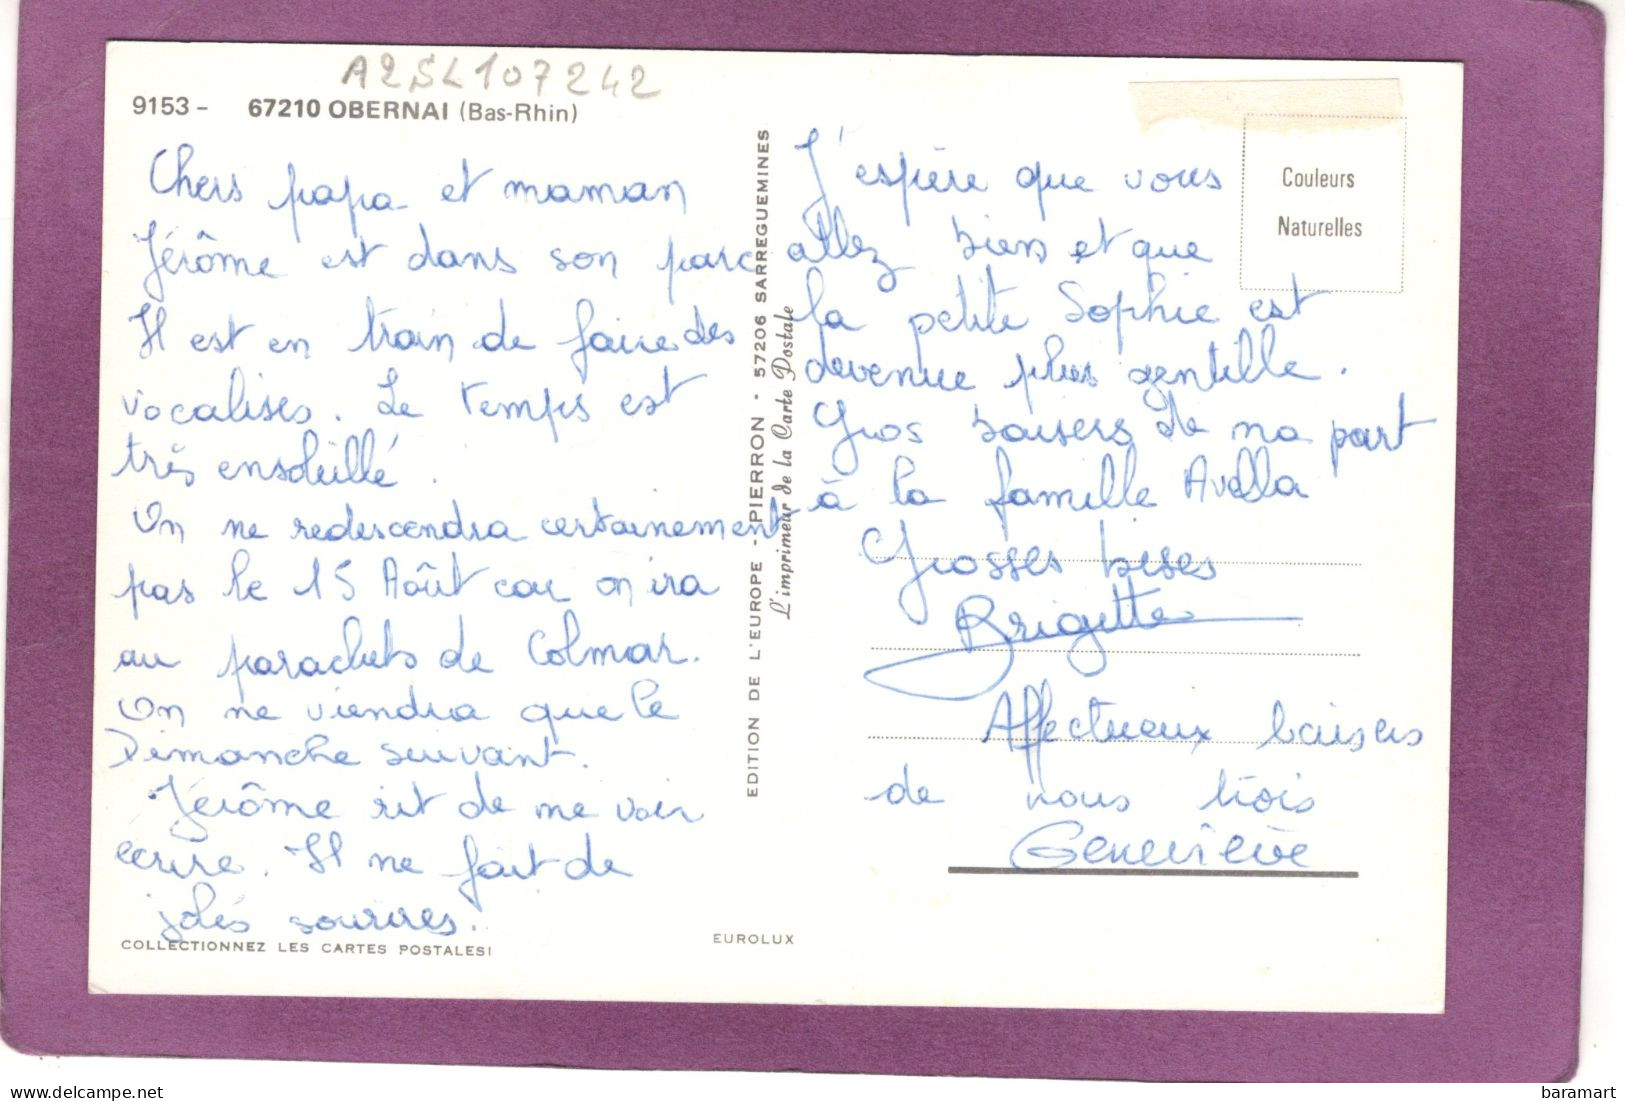 A2SL107242
9153 - 67210 OBERNAI (Bas-Rhin)
Chers papa et maman
Jérôme est dans son parc
Il est en train de faire des
vocalises. Le temps est
très ensoleillé.
On ne redescendra certainement
pas le 15 Août car on ira
au parachuts de Colmar.
On ne viendra que le
Dimanche suivant.
Jérôme rit de me voir
écrire. Il me fait de
jolis sourires.
COLLECTIONNEZ LES CARTES POSTALES!
EDITION DE L'EUROPE - PIERRON - 57206 SARREGUEMINES
L'imprimeur de la Carte Postale
EUROLUX
Couleurs
Naturelles
J'espère que vous
allez bien et que
la petite Sophie est
devenue plus gentille.
Gros baisers de ma part
à la famille Avella
Grosses bises
Brigitte
Affectueux baisers
de nous trois
Geneviève
delcampe.net
baramart